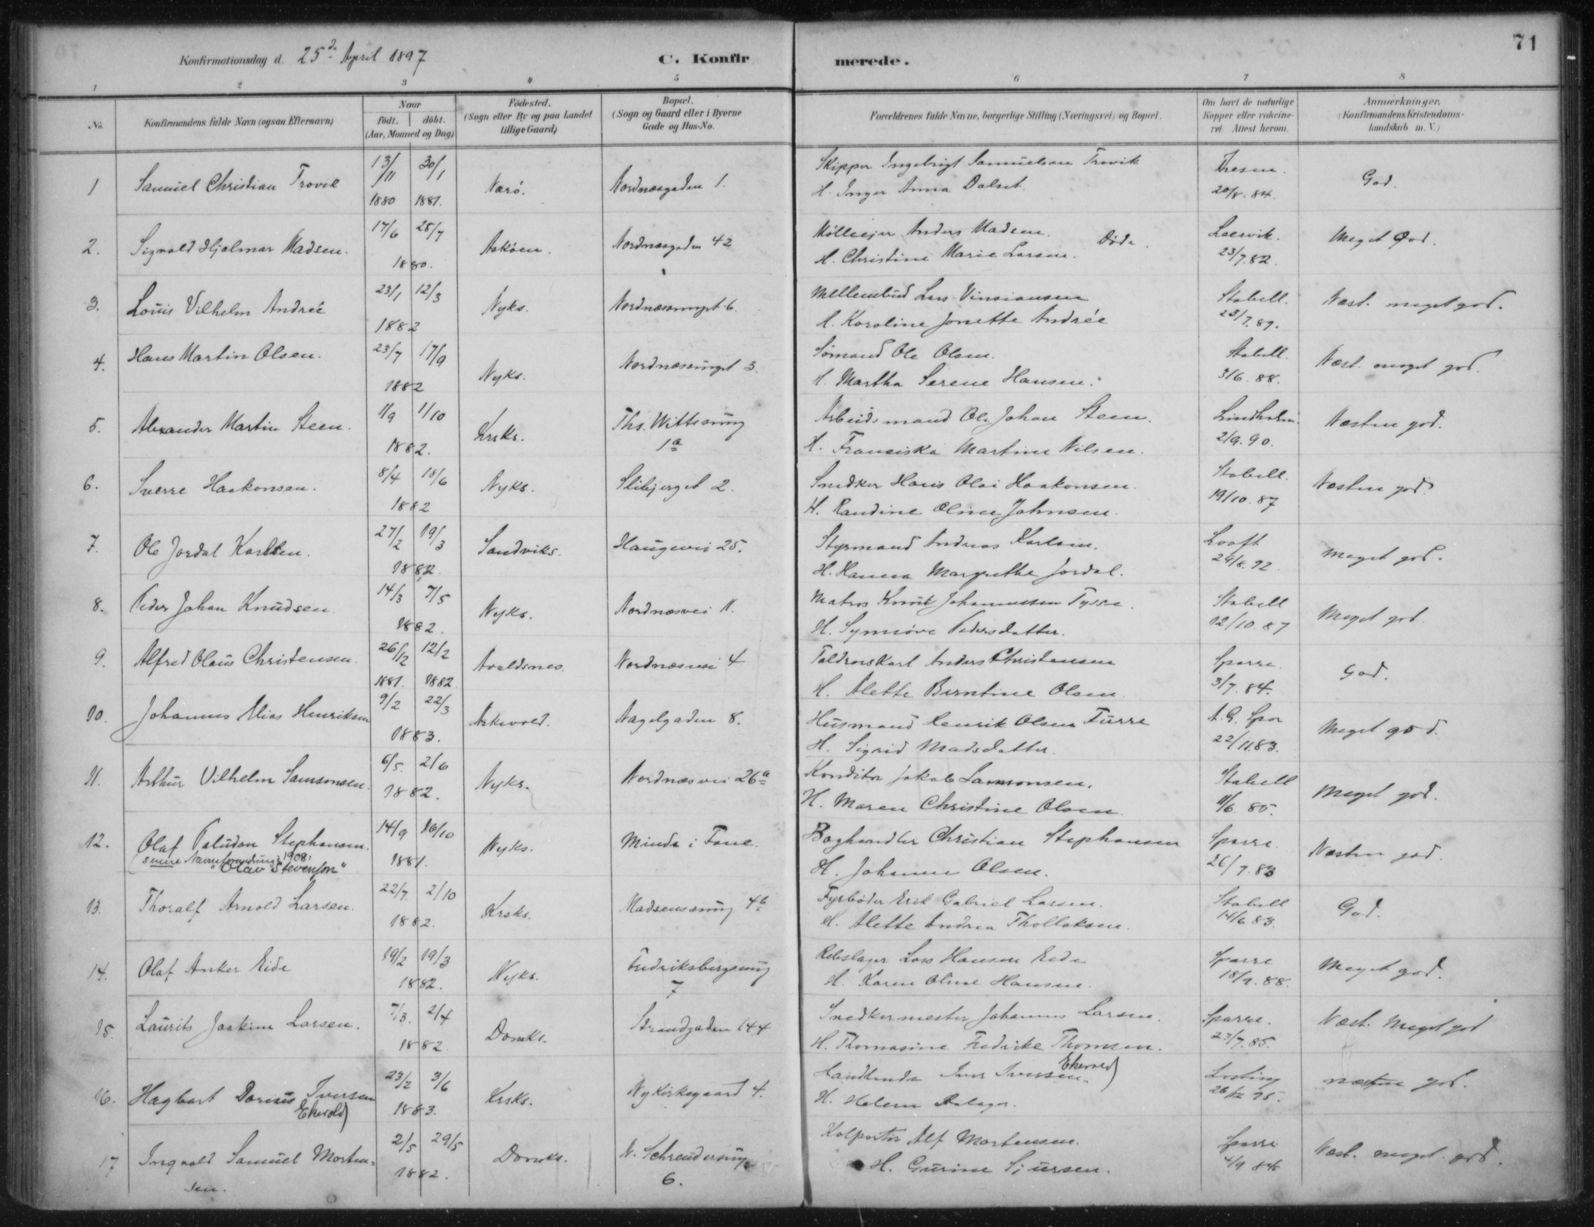 71
Konfirmationsdag d. 25de April 1897 C. Konfirmerede.
1 2 3 4 5 6 7 8
No. Konfirmandens fulde Navn (ogsaa Efternavn) Naar født. døbt. (Aar, Maaned og Dag) Fødested. (Sogn eller By og paa Landet tillige Gaard) Bopæl. (Sogn og Gaard eller i Byerne Gade og Hus-No. Forældrenes fulde Navne, borgerlige Stilling (Næringsvei) og Bopæl. Om havt de naturlige Kopper eller vaccineret. Attest herom. Anmærkninger. (Konfirmandens Kristendomskundskab m. V.)
1 Samuel Christian Trovik 13/11 1880 30/1 1881. Nærø. Nordnæsgaden 1. Skipper Ingebrigt Samuelsen Trovik
H. Inger Anna Dalset. 20/8. 84. God.
2. Sigvald Hjalmar Madsen. 17/6 25/7 1880. Askøen. Nordnæsgaden 42 Mølleeier Anders Madsen. Døde.
H. Christine Marie Larsen. Leervik. 23/7.82. Meget God.
3. Louis Vilhelm Andrée 23/1 12/3 1882 Nyks. Nordnæssmuget 6. Lars
H. Karoline Jonette Andrée Stabell. Næst. meget god.
4. Hans Martin Olsen. 23/7 17/9 1882 Nyks. Nordnæssmuget 3. Sømand Ole Olsen.
H. Martha Serene Hansen. Stabell. 3/6. 88. Næst. meget god.
5. Alexander Martin Steen. 11/9 1/10 1882. Krsks. Ths. Wittssmug 1a Arbeidsmand Ole Johan Steen.
H. Franciska Martine Nilsen. Lindholm. 2/9. 90. Næsten god.
6. Sverre Haakonsen. 8/4 18/6 1882 Nyks. Skibjerget 2. Snedker Hans Olai Haakonsen.
H. Randine Oline Johnsen. Stabell. 19/10. 87 Næsten god.
7. Ole Jordal Karlsen. 27/2 19/3 1882. Sandviks. Haugevei 25. Styrmand Andreas Karlsen.
H. Hanna Margrethe Jordal. Looft 24/8. 92 Meget god.
8. Peder Johan Knudsen 14/3 7/5 1882. Nyks. Nordnæsvei 11. Matros Knut Johannessen Tysse.
H. Synnøve Pedersdatter. Stabell 12/10. 87 Meget god.
9. Alfred Olaus Christensen 26/12 1881. 12/2 1882 Avaldsnes. Nordnæsvei 4 Toldroerskarl Anders Christensen
H. Alette Berntine Olsen. Sparre. 3/7. 84. God.
10. Johannes Elias Henriksen 9/2 22/3 1883. Askevold. Nagelgaden 8. Husmand Henrik Olsen Furre
H. Sigrid Madsdatter. 22/11 83. Meget god.
11. Arthur Vilhelm Samsonsen. 6/5. 2/6 1882. Nyks. Nordnæsvei 26a Konditor Jakob Samsonsen.
H. Maren Christine Olsen Stabell 85. Meget god.
12. Olaf Paludan Stephansen. 14/9 16/10 1881. Nyks. Minde i Fane. Boghandler Christian Stephansen
senere Navneforandring 1908: "Olav Stevenson" H. Johanne Olsen. Sparre. 26/7. 83 Næsten god.
13. Thoralf Arnold Larsen. 22/7 2/10 1882. Krsks. Madsenssmug 4b Fyrbøder Erik Gabriel Larsen.
H. Alette Andrea Thollaksen. Stabell 14/6 83. God.
14. Olaf Anker Eide 19/2 19/3 1882. Nyks. Fredriksbergsmug 7 Rebslager Lars Hansen Eide
H. Karen Oline Hansen. Sparre 18/9. 88. Meget god.
15. Laurits Joakim Larsen. 7/3. 2/4 1882 Domks. Strandgaden 144 Snedkermester Johannes Larsen.
H. Thomasine Fredrike Thomsen. Sparre. 23/7. 85. Næst. Meget god
16. Hagbart Darius Iversen Ekerold) 23/2 3/6 1883. Krsks. Nykirkegaard 4. Handlende Iver Iversen. Ekerold)
H. Helene Losting 95. næsten god.
17 Ingvald Samuel Mortensen. 2/5 29/5 1882. Domks. N. Schreudersmug 6. Kolportør Alf Mortensen.
H. Gurine Sjursen. Sparre 84 Næst. meget god.